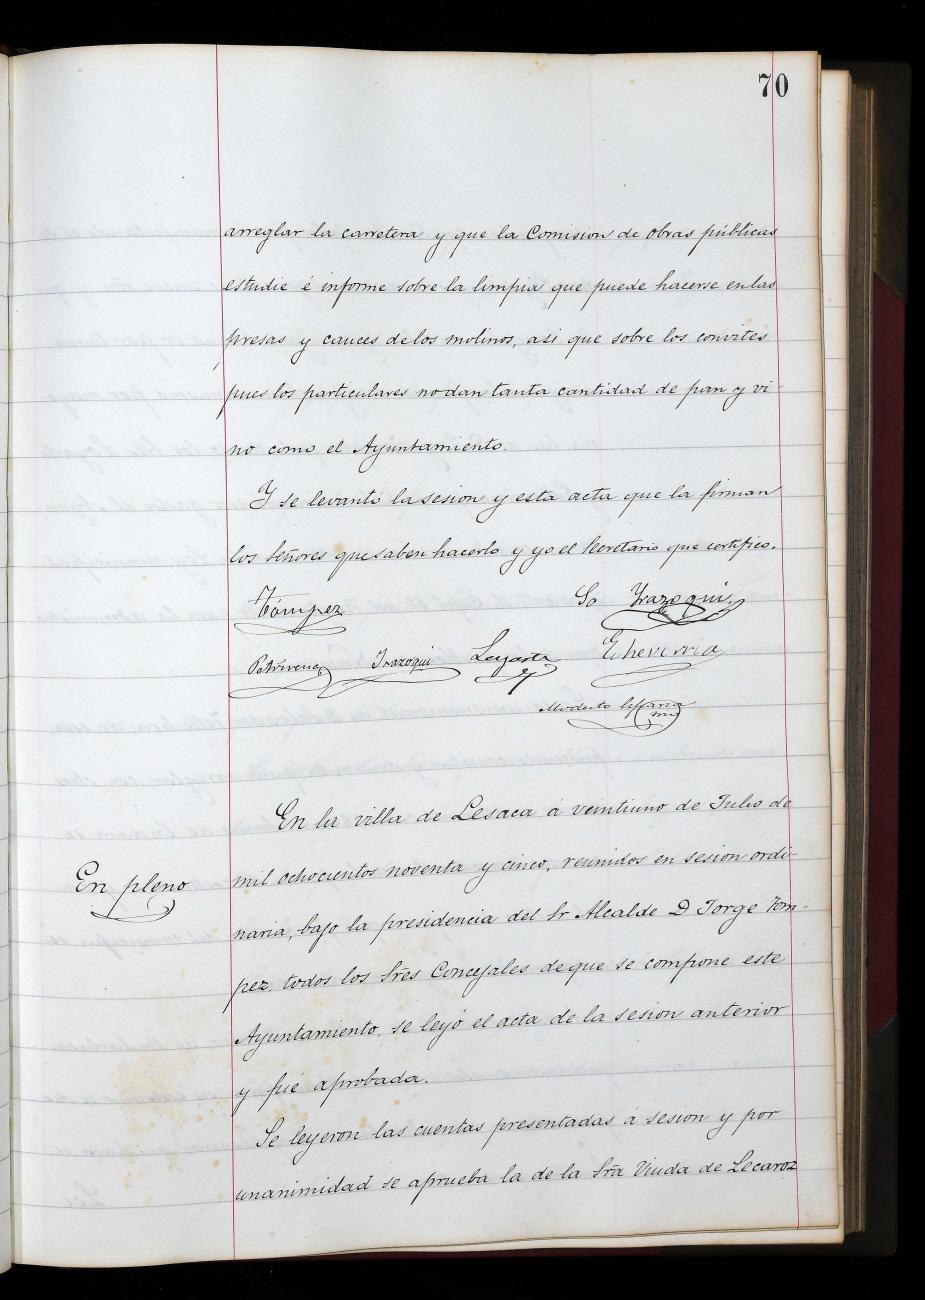 70
arreglar la carretera y que la Comision de obras públicas
estudie é informe sobre la limpia que puede hacerse en las
presas y cauces de los molinos, asi que sobre los convites
pues los particulares no dan tanta cantidad de pan y vi-
no como el Ayuntamiento.
Y se levantó la sesion y esta acta que la firman
los Señores que saben hacerlo y yo el Secretario que certifico.
Tompez Yrazoqui
Irazoqui Echeverria
Modesto
En la villa de Lesaca á veintiuno de Julio de
En pleno
mil ochocientos noventa y cinco, reunidos en sesion ordi-
naria, bajo la presidencia del Sr Alcalde D Jorge Tom-
pez, todos los Sres Concejales de que se compone este
Ayuntamiento, se leyó el acta de la sesion anterior
y fué aprobada.
Se leyeron las cuentas presentadas á sesion y por
unanimidad se aprueba la de la Sra Viuda de Lecaroz